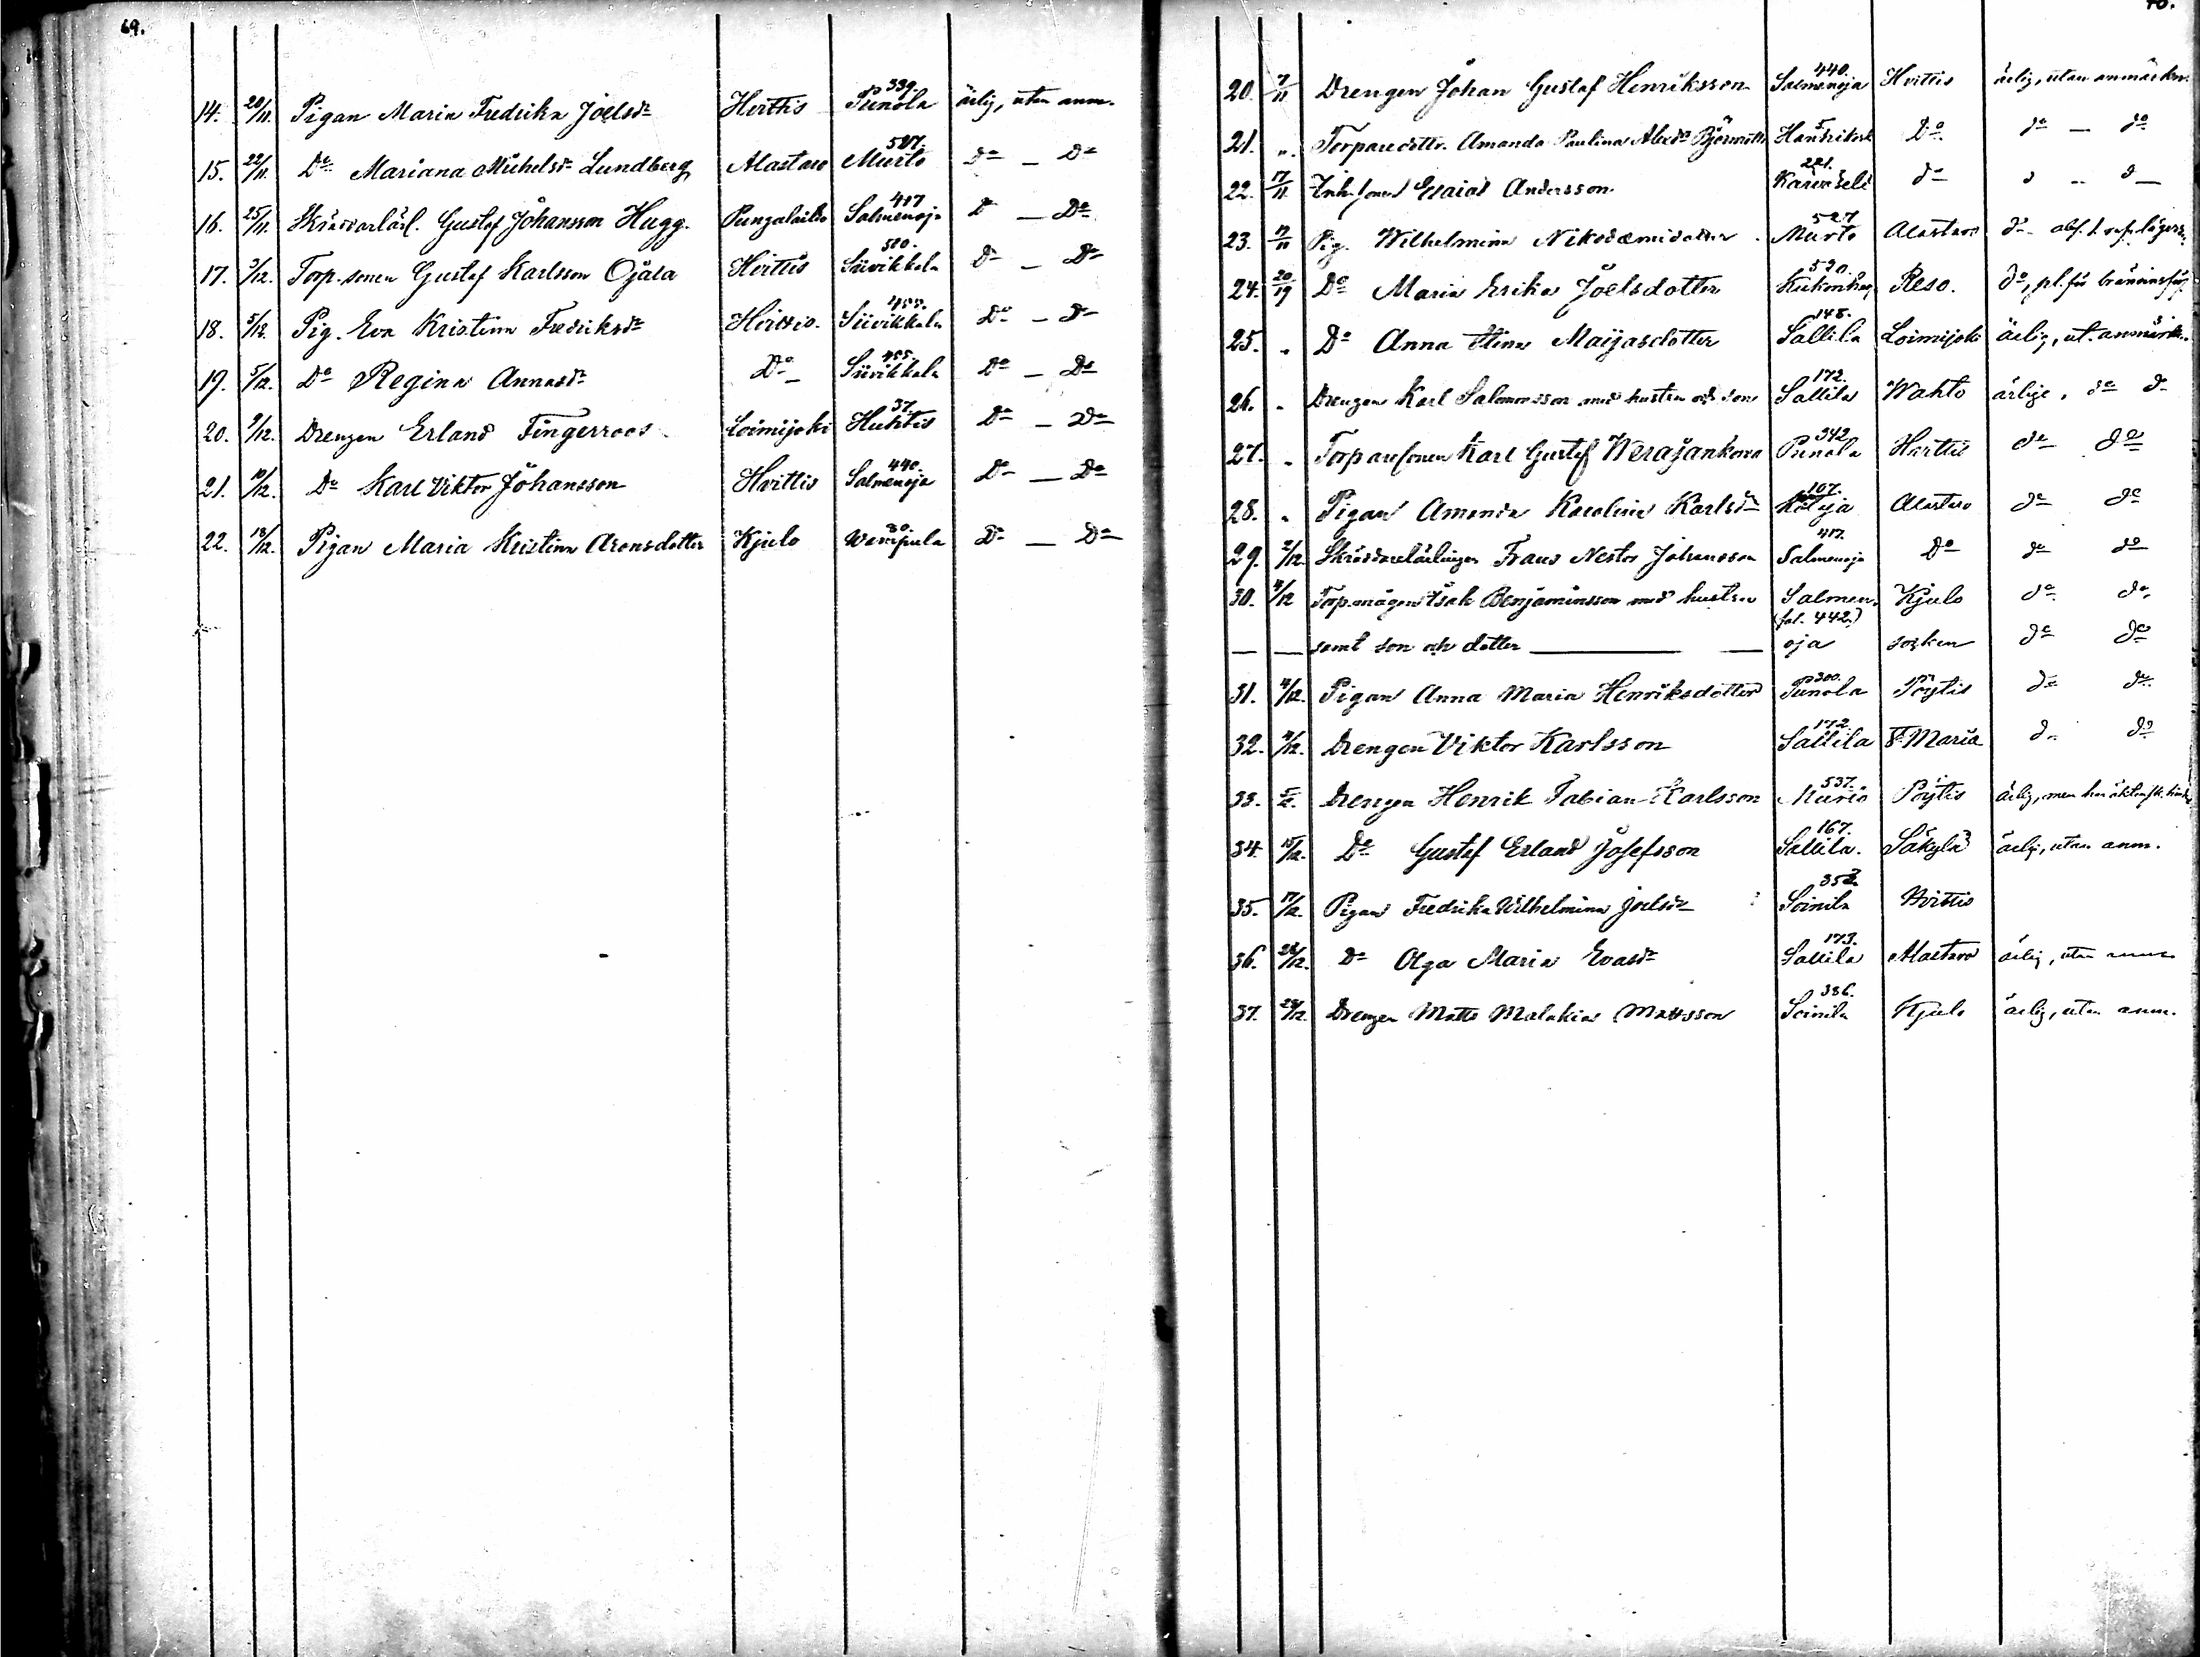 69.
14. 20/11. Pigan Maria Fredrika Joelsdr Hvittis 339. Punola ärlig, utan anm.
15. 22/11. Do Mariana Michelsdr Lundberg Alastaro 527. Murto Do — Do
16. 25/11. Skräddarlärl. Gustaf Johansson Hugg. Pungalaitio 417 Salmenoja D — Do
17. 3/12. Torp.sonen Gustaf Karlsson Ojala Hvittis 510. Siivikkala Do — Do
18. 5/12. Pig. Eva Kristina Fredriksdr Hvittis. 455. Siivikkala Do — Do
19. 5/12. Do Regina Annasdr Do — 455. Siivikkala Do — Do
20. 9/12. Drengen Erland Fingerroos Loimijoki 37. Huhtis Do — Do
21. 10/12. Do Karl Viktor Johansson Hvittis 440. Salmenoja Do — Do
22. 18/12. Pigan Maria Kristina Aronsdotter Kjulo 30. Wampula Do — Do
70.
20. 7/11 Drengen Johan Gustaf Henriksson 440. Salmenoja Hvittis ärlig, utan anmärkn.
21. „ Torparedottr. Amanda Paulina 5. Do do — do
22. 17/11 Inh.sonen Esaias Andersson 221. Karinkelä do d — d
23. 17/11 Pig. Wilhelmina Nikodemidotter 527. Murto Alastaro do
24. 20/19 Do Maria Erika Joelsdotter 520. Reso. do, pl. för
25. „ Do Anna Stina Maijasdotter 148. Sallila Loimijoki ärlig, ut. anmärk.
26. „ Drengen Karl Salomonsson med hustru och son 172. Sallila Wahto ärlige, do d
27. „ Torparesonen Karl Gustaf 342 Punola Hvittis do do
28. „ Pigan Amanda Karolina Karlsdr 107. Alastaro do do
29. 2/12 Skräddarelärlingen Frans Nestor Johansson 417. Salmenoja Do do do
30. 4/12 Torp.mågen Isak Benjaminsson med hustru Salmen- Kjulo do do
(fol. 442.)
— — samt son och dotter — oja socken do do
31. 4/12. Pigan Anna Maria Henriksdotter 300. Punola Pöytis do do
32. 4/12. Drengen Viktor Karlsson 172 Sallila St Maria do do
33. 5/12. Drengen Henrik Fabian Karlsson 537. Murto Pöytis ärlig, men har
34. 15/12. Do Gustaf Erland Josefsson 167. Sallila. Säkylä ärlig, utan anm.
35. 17/12. Pigan Fredrika Wilhelmina Joelsdr 352. Soinila Hvittis
36. 28/12. Do Olga Maria Evasdr 173. Sallila Alastaro ärlig, utan anm.
37. 28/12. Drengen Matts Malakias Mattsson 336. Soinila Kjulo ärlig, utan anm.